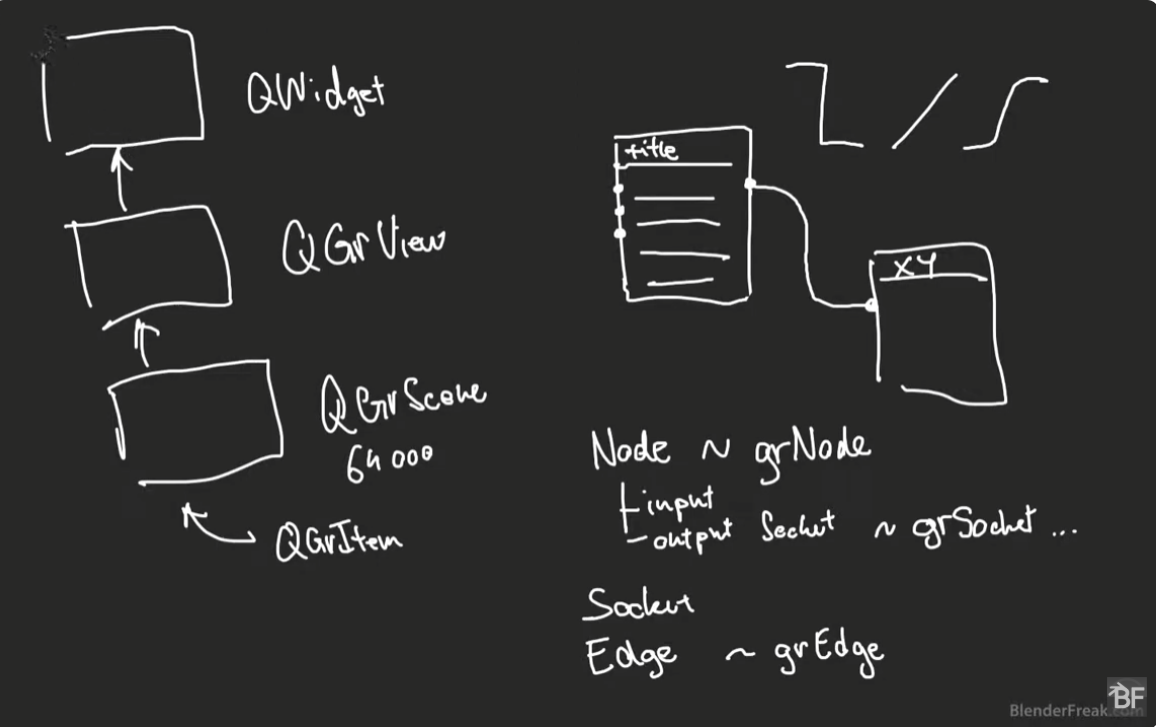 QWidget
QGrView
QGrScene
64 000
QGrItem
title
XY
Node ~ grNode
input
output Socket ~ grSocket ...
Socket
Edge ~ grEdge
BF
BlenderFreak.com